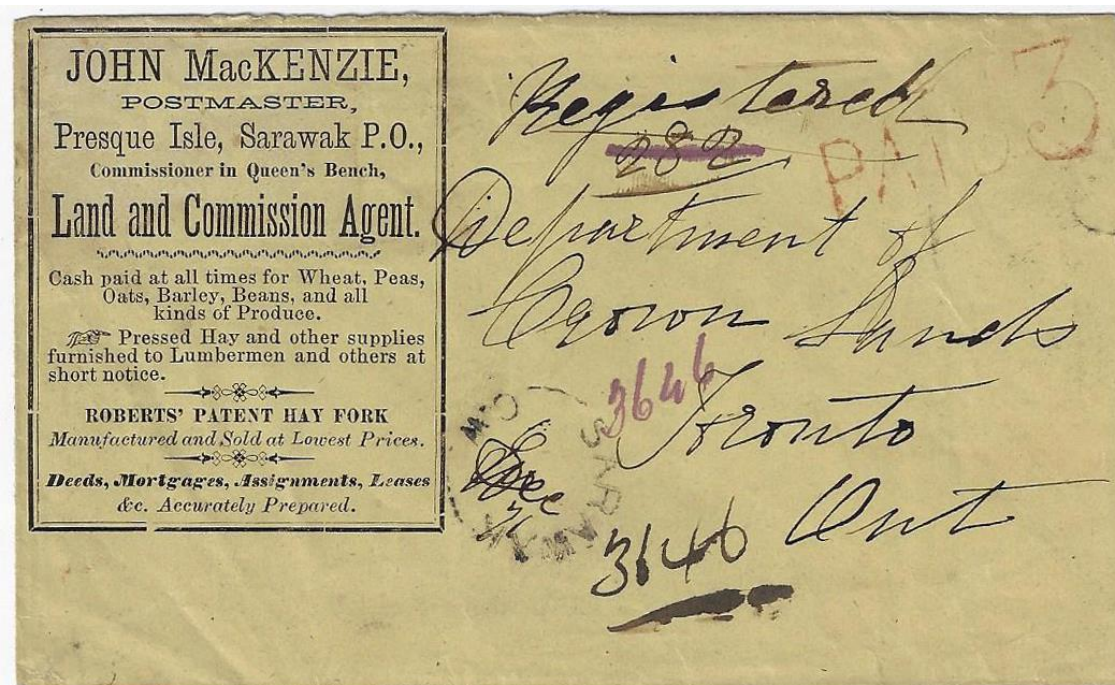 JOHN MacKENZIE,
POSTMASTER,
Presque Isle, Sarawak P.O.,
Commissioner in Queen's Bench,
Land and Commission Agent.
Cash paid at all times for Wheat, Peas,
Oats, Barley, Beans, and all
kinds of Produce.
Pressed Hay and other supplies
furnished to Lumbermen and others at
short notice.
ROBERTS' PATENT HAY FORK
Manufactured and Sold at Lowest Prices.
Deeds, Mortgages, Assignments, Leases
&c. Accurately Prepared.
Registered
282
PAID 3
Department of
Crown Lands
3646
Toronto
Ont
3646
SARAWAK
C.W
Dec